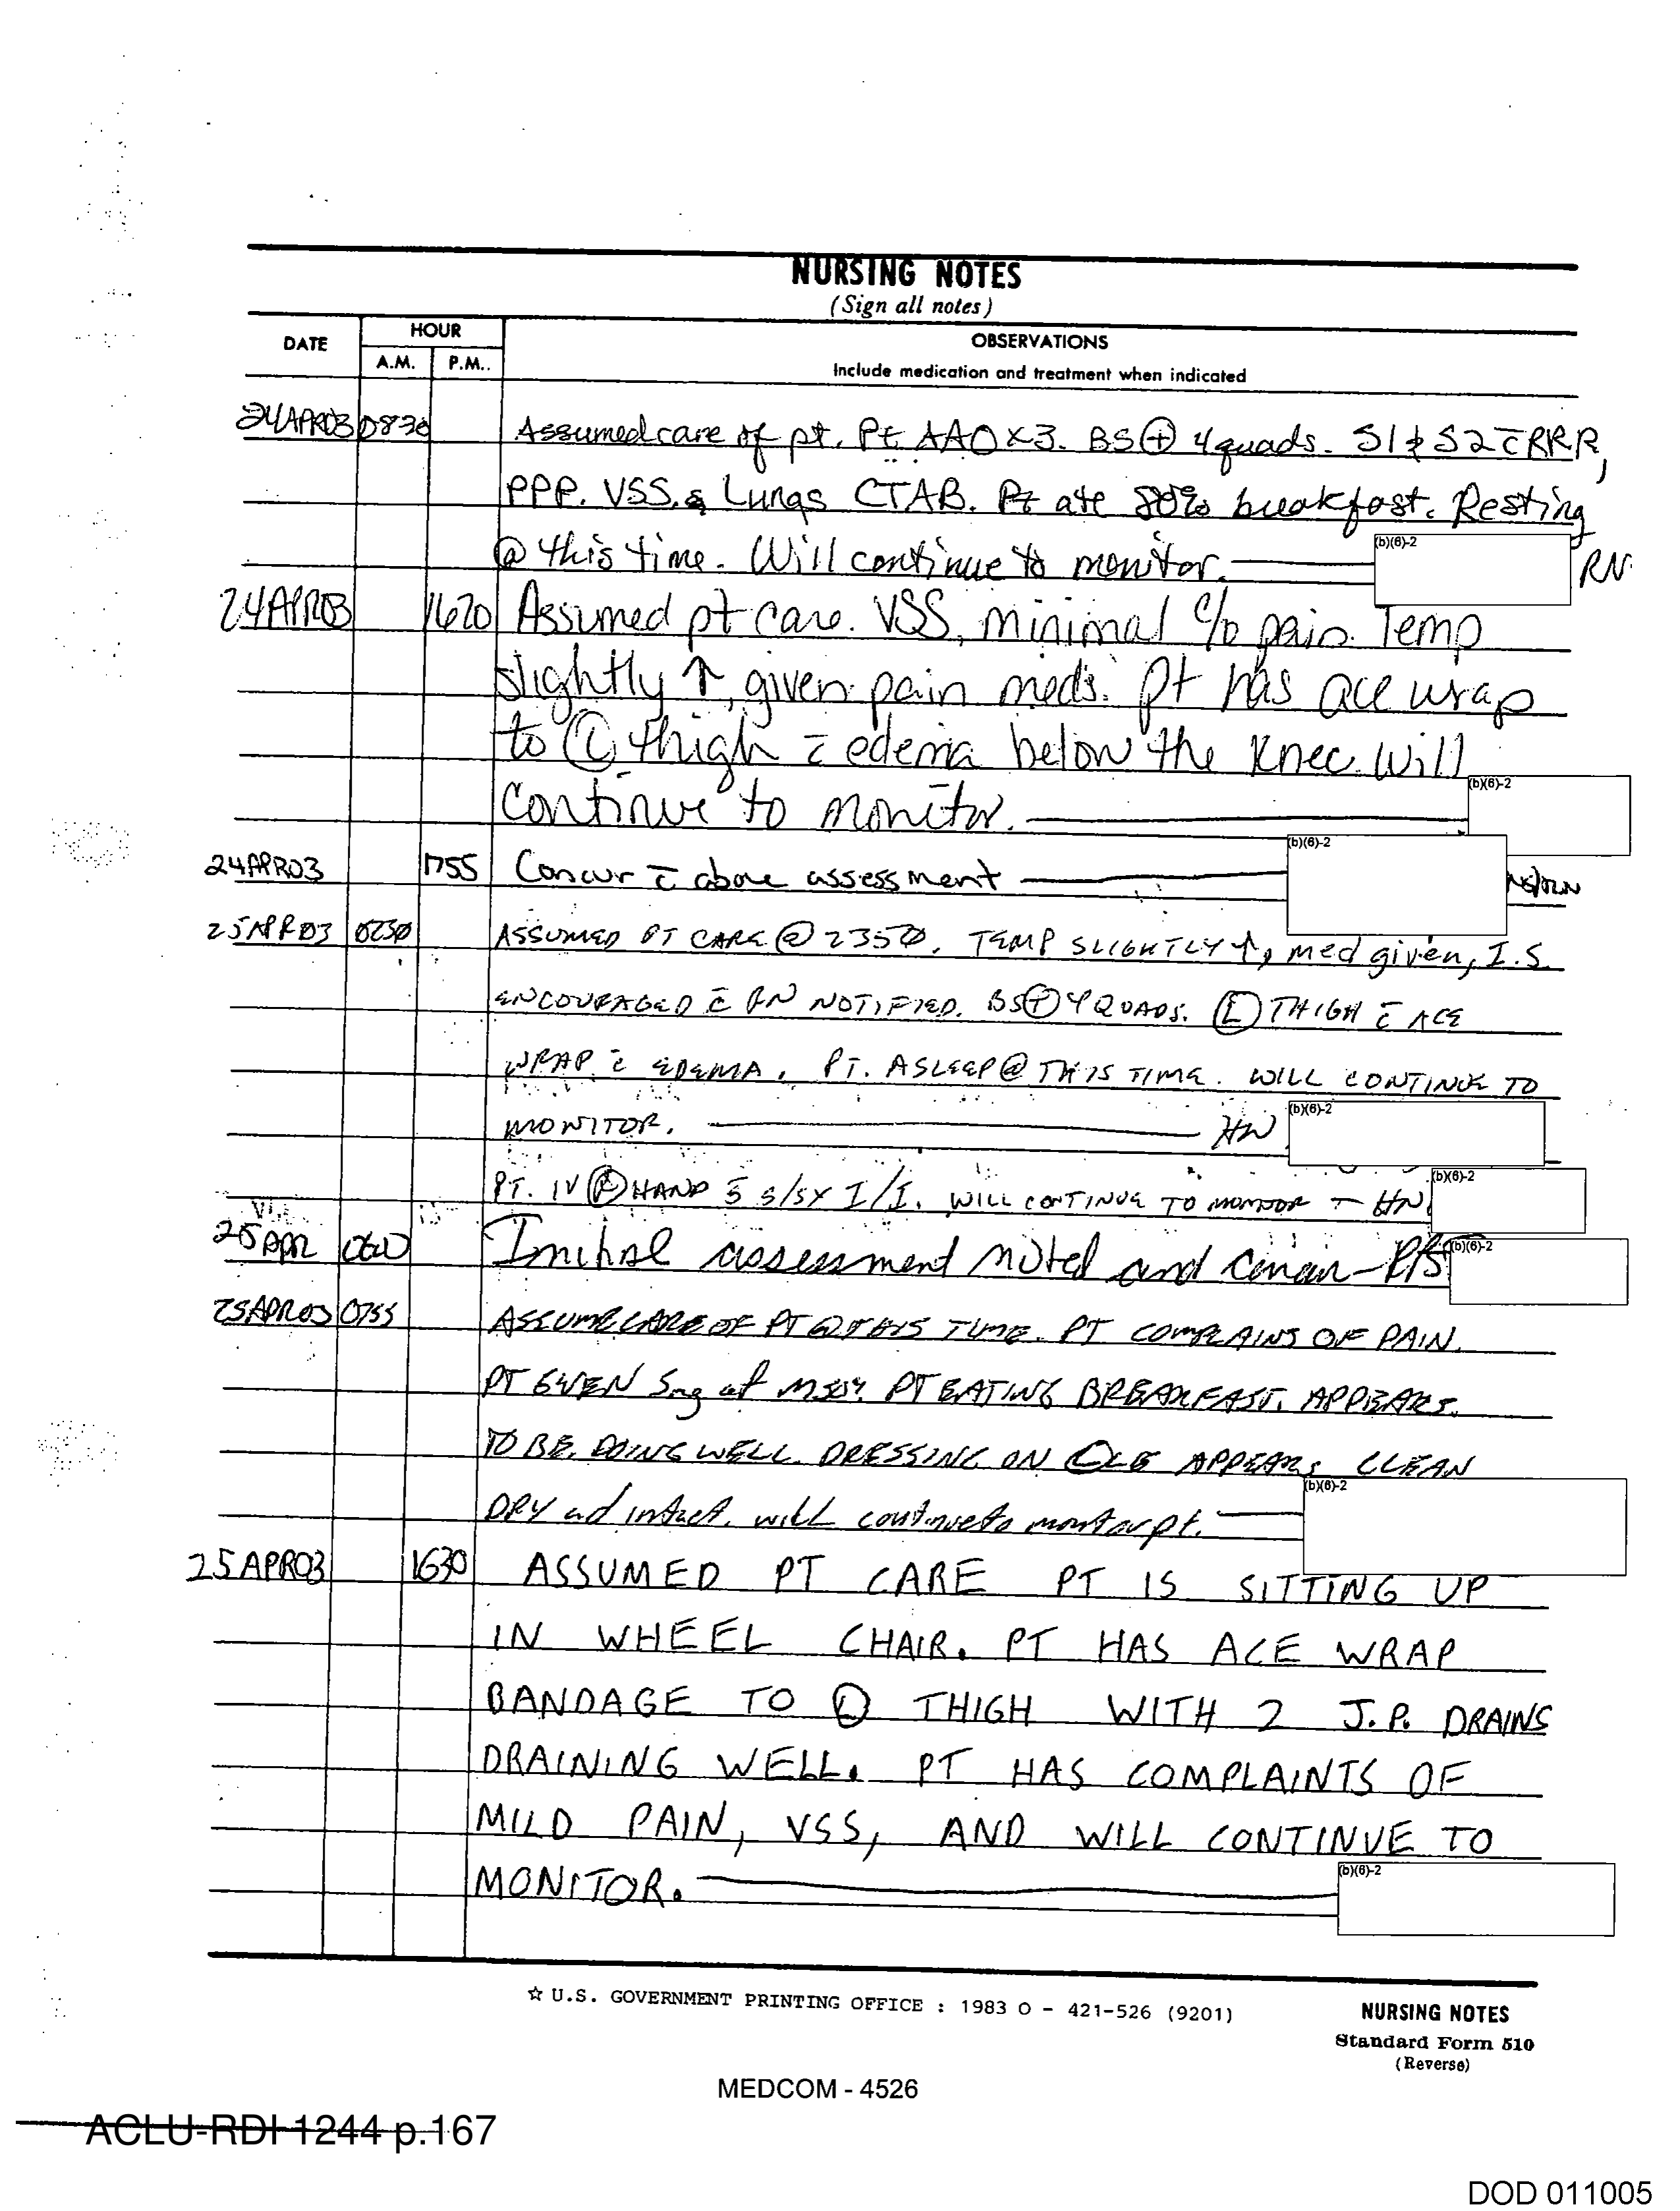 NURSING NOTES
(Sign all notes)
DATE HOUR OBSERVATIONS
A.M. P.M.. Include medication and treatment when indicated
24APR03 0830 Assumed care of pt. Pt AAOx3. BS⊕ 4 quads. S1 & S2 c̄ RRR,
PPP. VSS. Lungs CTAB. Pt ate 80% breakfast. Resting
@ this time. Will continue to monitor. (b)(6)-2 RN
24APR03 1620 Assumed pt care. VSS, minimal c/o pain. Temp
slightly ↑, given pain meds. Pt has ace wrap
to Ⓛ thigh c̄ edema below the knee. Will
continue to monitor. (b)(6)-2
24APR03 1755 Concur c̄ above assessment (b)(6)-2
25APR03 0230 ASSUMED PT CARE @ 2350. TEMP SLIGHTLY ↑, med given, I.S.
ENCOURAGED c̄ RN NOTIFIED. BS⊕ 4 QUADS. Ⓛ THIGH c̄ ACE
WRAP c̄ EDEMA. PT. ASLEEP @ THIS TIME. WILL CONTINUE TO
MONITOR. HN (b)(6)-2
PT. IV Ⓡ HAND s̄ s/sx I/I. WILL CONTINUE TO MONITOR - HN (b)(6)-2
25 APR Initial assessment noted and concur - (b)(6)-2
25APR03 0755 ASSUME CARE OF PT @ THIS TIME. PT COMPLAINS OF PAIN.
PT GIVEN 5mg of MSO4. PT EATING BREAKFAST. APPEARS
TO BE DOING WELL. DRESSING ON Ⓛ LE APPEARS CLEAN
DRY and intact. will continue to monitor pt. (b)(6)-2
25APR03 1630 ASSUMED PT CARE PT IS SITTING UP
IN WHEEL CHAIR. PT HAS ACE WRAP
BANDAGE TO Ⓛ THIGH WITH 2 J.P. DRAINS
DRAINING WELL. PT HAS COMPLAINTS OF
MILD PAIN, VSS, AND WILL CONTINUE TO
MONITOR. (b)(6)-2
☆ U.S. GOVERNMENT PRINTING OFFICE : 1983 O - 421-526 (9201)
NURSING NOTES
Standard Form 510
(Reverse)
MEDCOM - 4526
ACLU-RDI 1244 p.167
DOD 011005